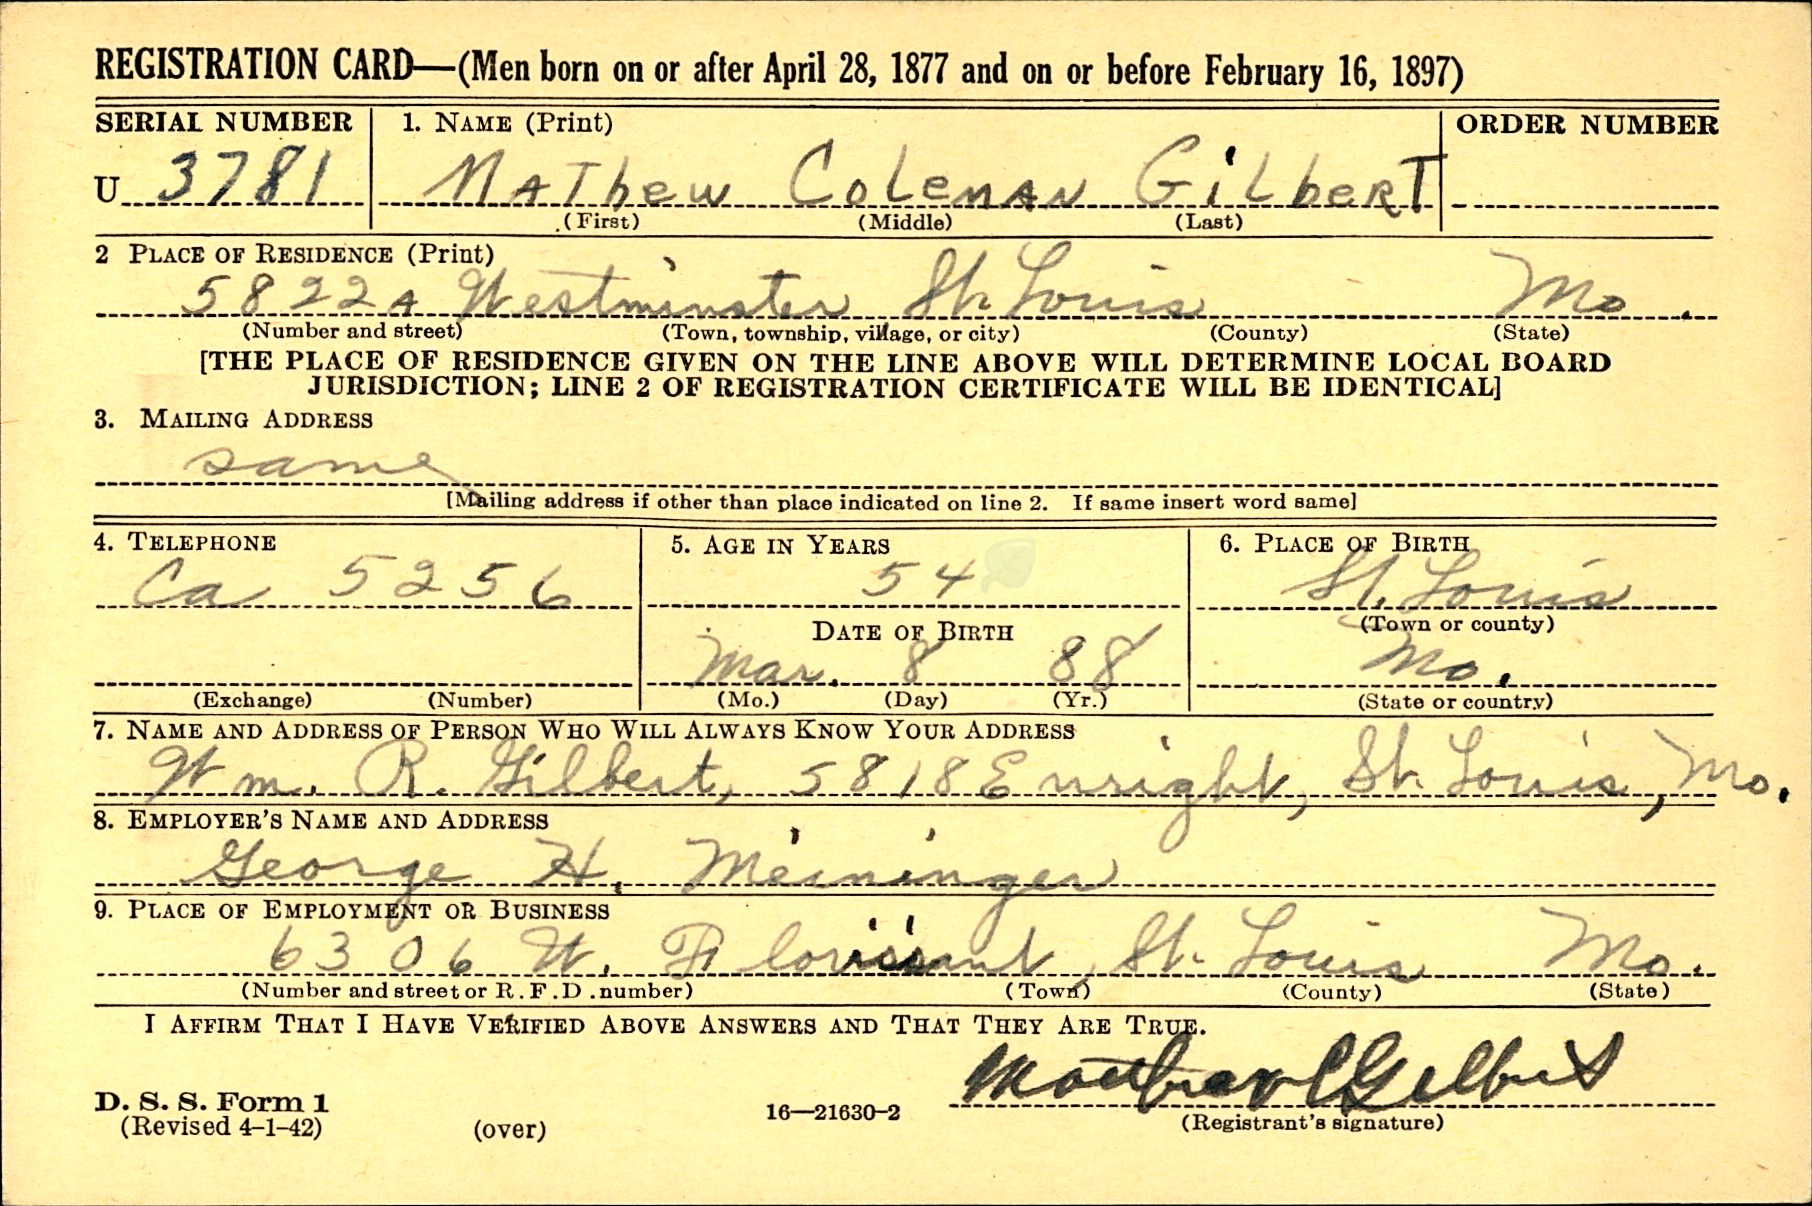 REGISTRATION CARD—(Men born on or after April 28, 1877 and on or before February 16, 1897)
SERIAL NUMBER 1. NAME (Print) ORDER NUMBER
U 3781 Mathew Coleman Gilbert
(First) (Middle) (Last)
2 PLACE OF RESIDENCE (Print)
5822A Westminster St. Louis Mo.
(Number and street) (Town, township, village, or city) (County) (State)
[THE PLACE OF RESIDENCE GIVEN ON THE LINE ABOVE WILL DETERMINE LOCAL BOARD
JURISDICTION; LINE 2 OF REGISTRATION CERTIFICATE WILL BE IDENTICAL]
3. MAILING ADDRESS
same
[Mailing address if other than place indicated on line 2. If same insert word same]
4. TELEPHONE 5. AGE IN YEARS 6. PLACE OF BIRTH
Ca 5256 54 St. Louis
DATE OF BIRTH (Town or county)
Mar. 8 88 Mo.
(Exchange) (Number) (Mo.) (Day) (Yr.) (State or country)
7. NAME AND ADDRESS OF PERSON WHO WILL ALWAYS KNOW YOUR ADDRESS
Wm. R. Gilbert, 5818 Enright, St. Louis, Mo.
8. EMPLOYER'S NAME AND ADDRESS
George H. Meininger
9. PLACE OF EMPLOYMENT OR BUSINESS
6306 W. Florissant, St. Louis Mo.
(Number and street or R.F.D. number) (Town) (County) (State)
I AFFIRM THAT I HAVE VERIFIED ABOVE ANSWERS AND THAT THEY ARE TRUE.
Mathew C Gilbert
D. S. S. Form 1
(Revised 4-1-42) (over) 16—21630-2 (Registrant's signature)